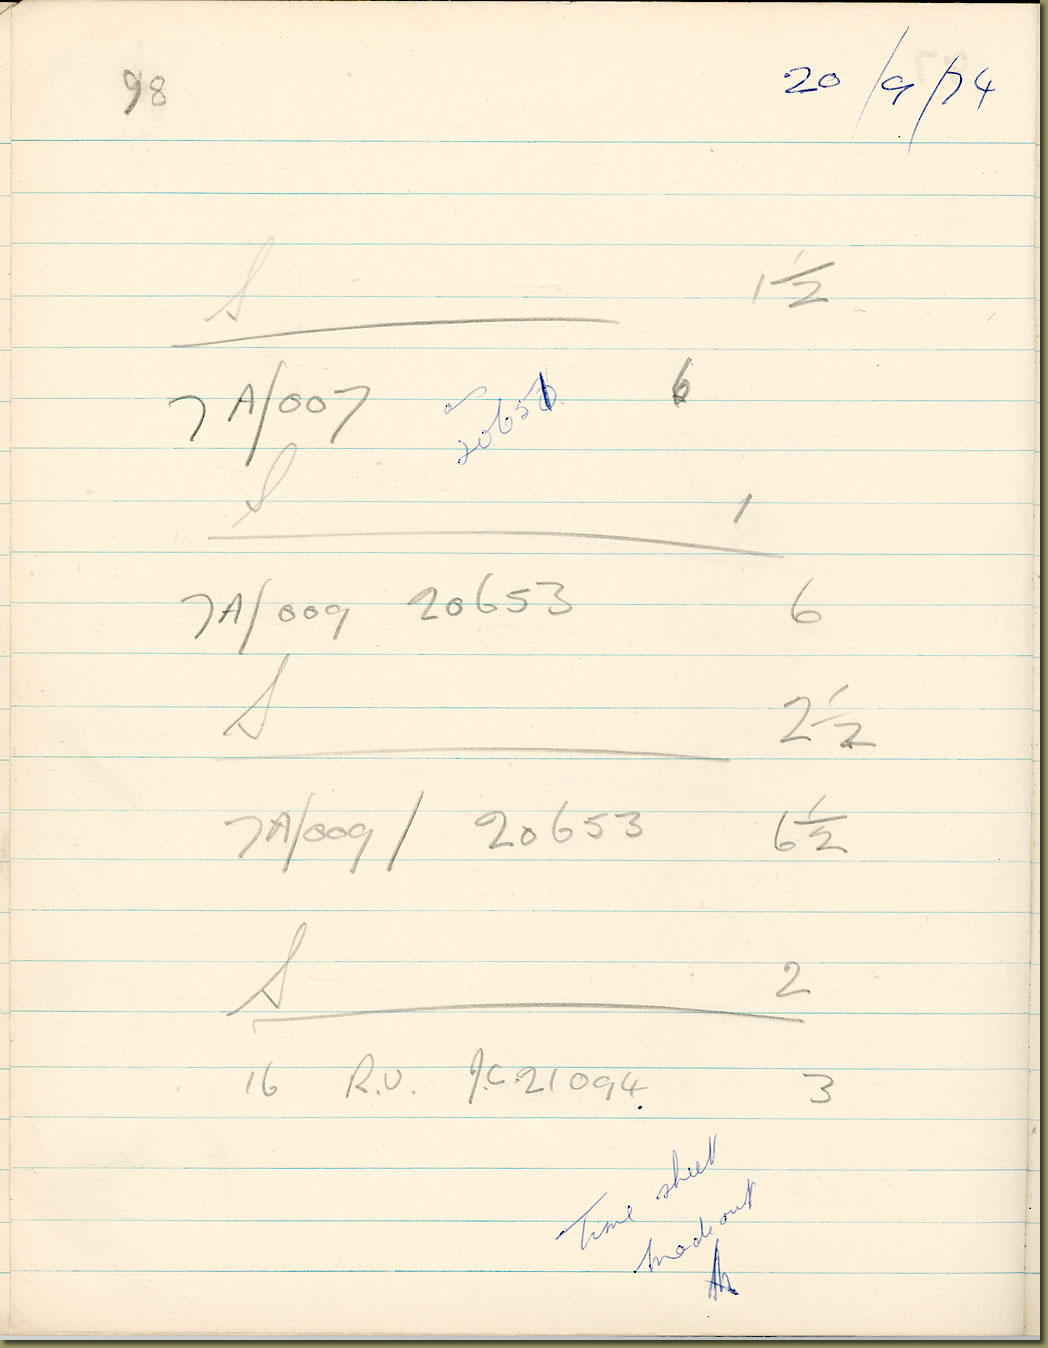 98 20/9/74
S 1 1/2
7A/007 6
S 1
7A/009 20653 6
S 2 1/2
7A/009/ 20653 6 1/2
S 2
16 R.U. J.C. 21094 3
Time sheet
made out